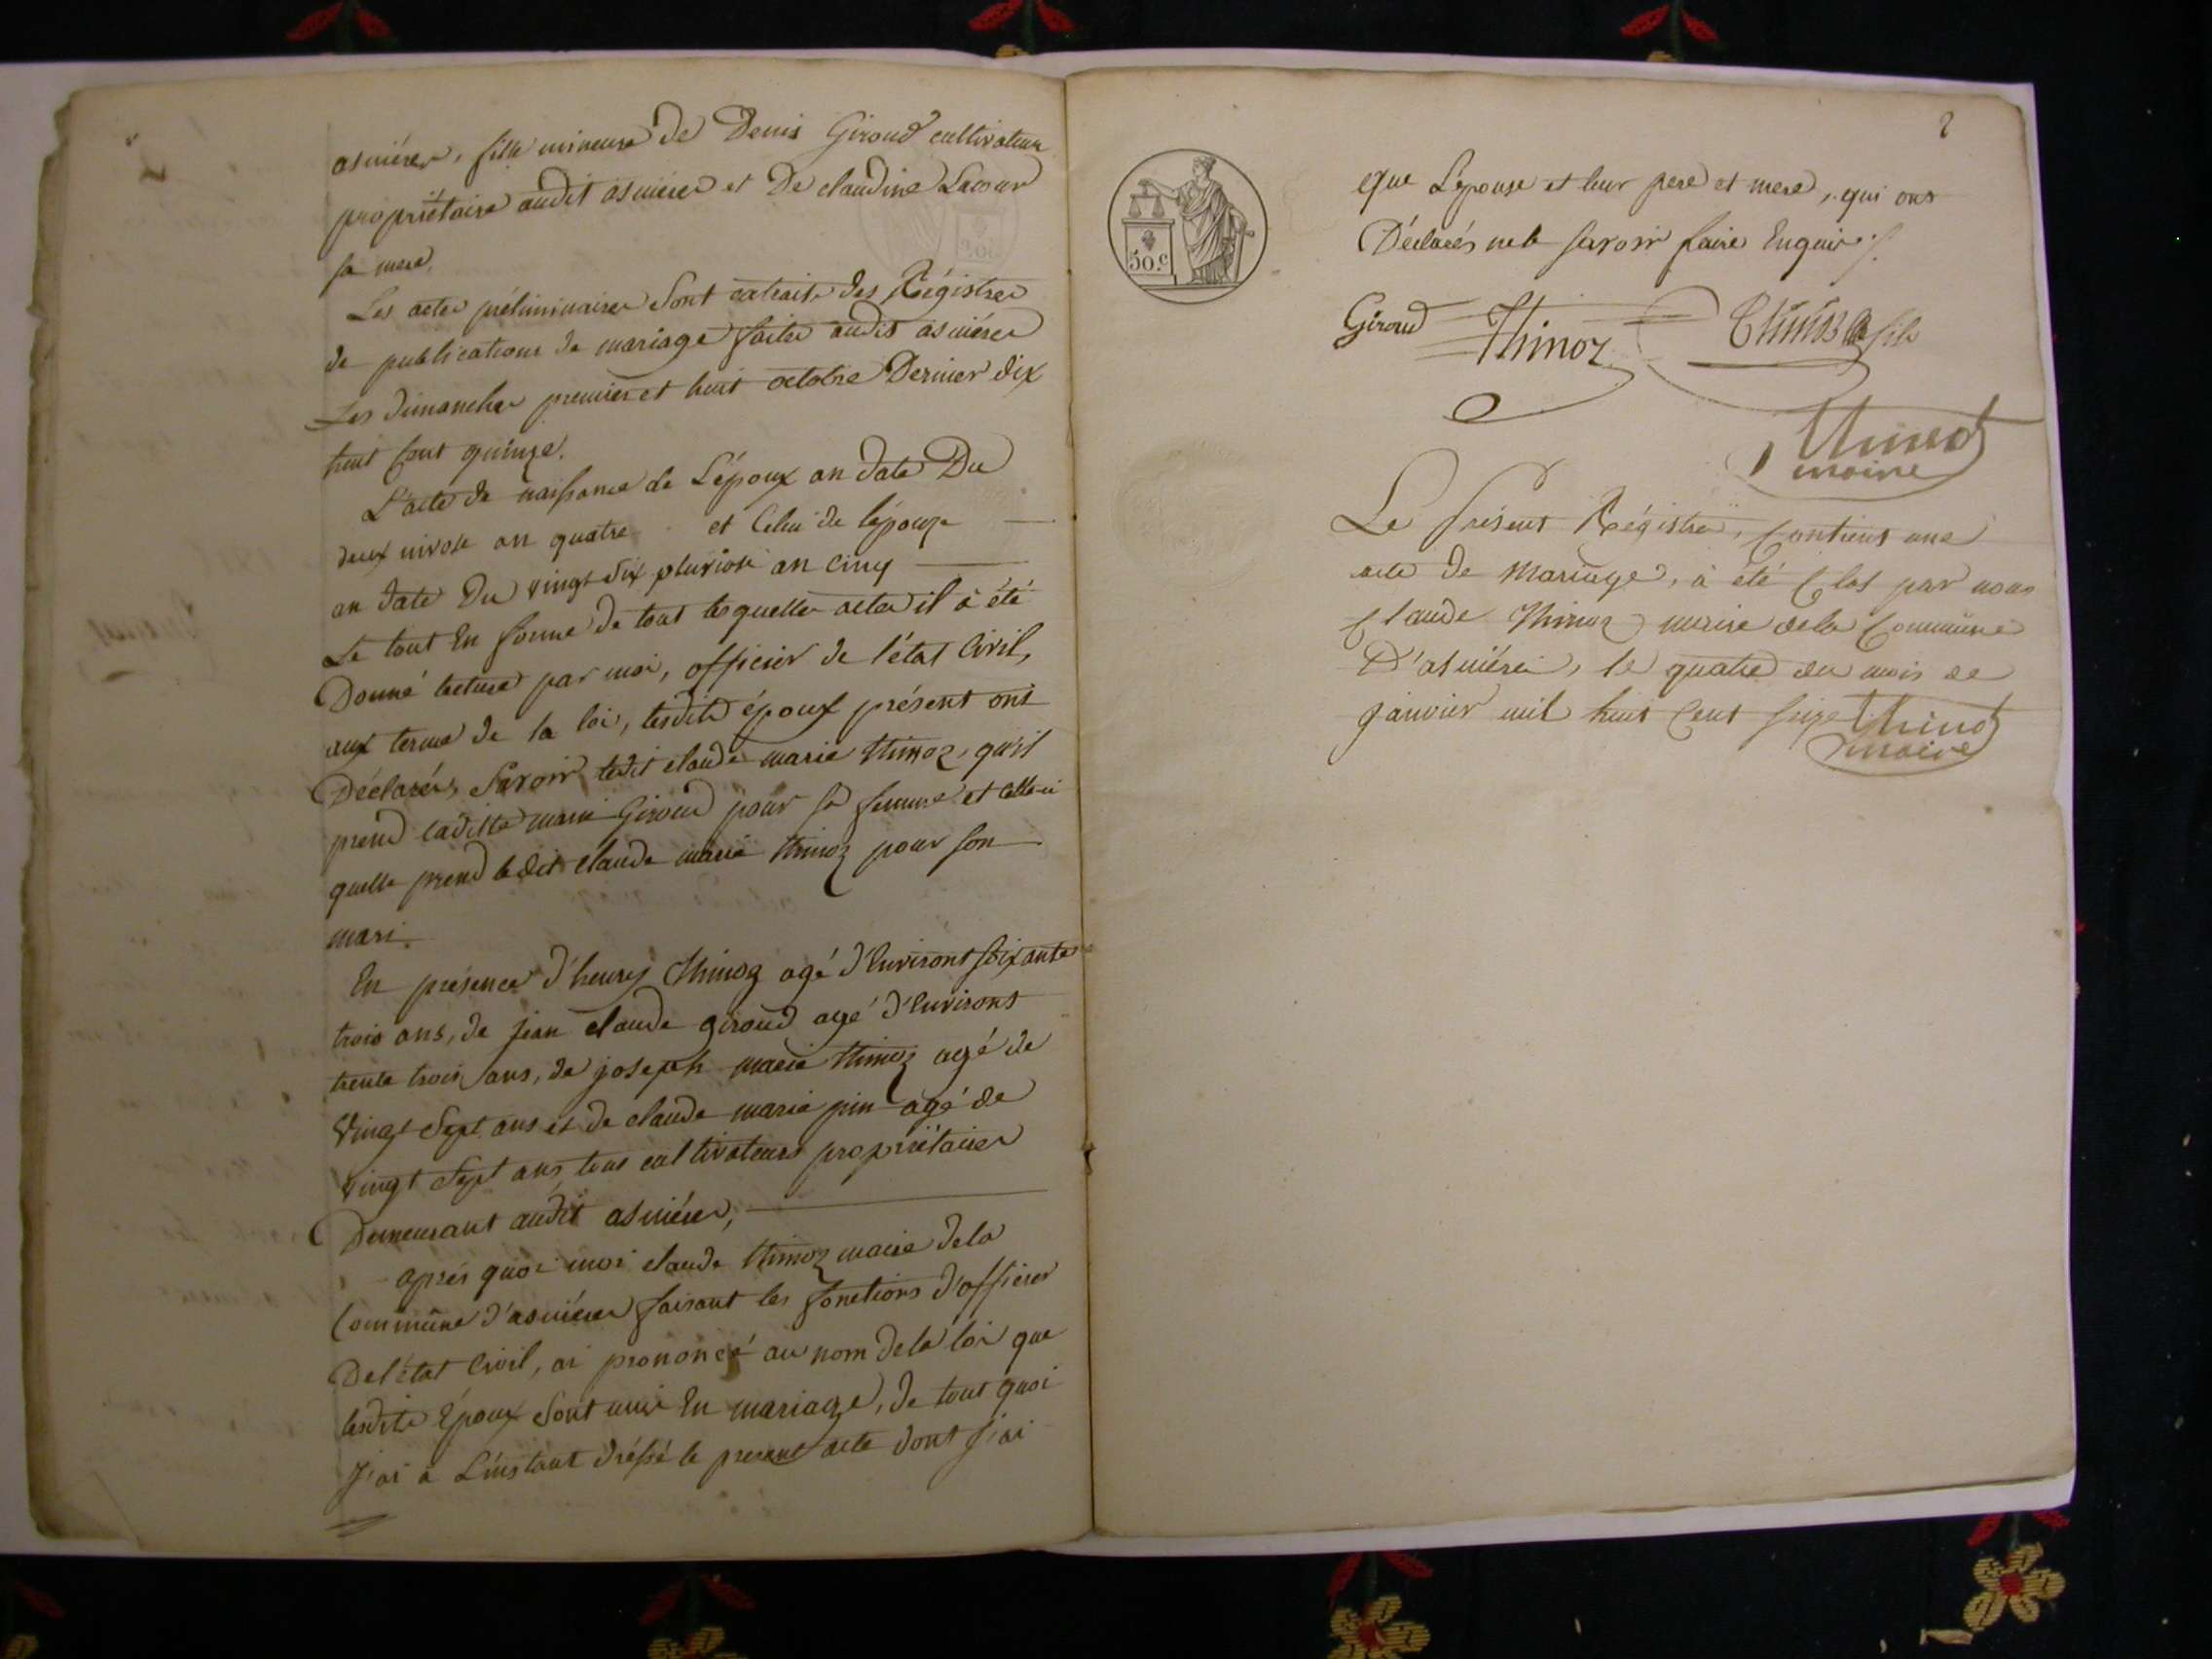 asniéres, fille mineure de Denis Giroud cultivateur
propriétaire audit asniéres et De claudine Lacour
sa mere.
Les actes préliminaires Sont extraits des Régistres
de publications de mariage faites audit asniéres
Les dimanches premier et huit octobre Dernier dix
huit Cent quinze.
L'acte de naissance de L'époux an date Du
deux nivose an quatre et Celui de l'épouse
an date Du vingt Six pluviose an Cinq
Le tout En forme de tout lesquelles actes il à été
Donné lecture par moi, officier de l'état Civil,
aux terme de la loi, lesdits époux présent ont
Déclarés, Savoir ledit claude marie thinoz, qu'il
prend laditte marie Giroud pour sa femme et celle-ci
quelle prend ledit claude marie thinoz pour son
mari.
En présence d'henry thinoz agé d'Environt soixante
trois ans, de jean claude giroud agé d'Environs
trente trois ans, de joseph marie thinoz agé de
Vingt Sept ans et de claude marie pin agé de
Vingt Sept ans, tous cultivateurs propriétaires
Demeurant audit asniéres,
après quoi moi claude thinoz maire dela
Commune d'asniéres faisant les fonctions d'officier
Del'état Civil, ai prononcé au nom dela loi que
lesdits Epoux Sont unis En mariage, de tout quoi
J'ai à L'instant dréssé le present acte dont j'ai
2
50.c
que L'épouse et leur pere et mere, qui ons
Déclarés nele savoir faire Enquis
Giroud Thinoz Thinoz fils
Thinoz
maire
Le présent Régistre, Contient une
acte de Mariage, à été Clos par nous
Claude Thinoz maire dela Commune
D'asniéres, le quatre du mois de
janvier mil huit Cent seize Thinoz
maire